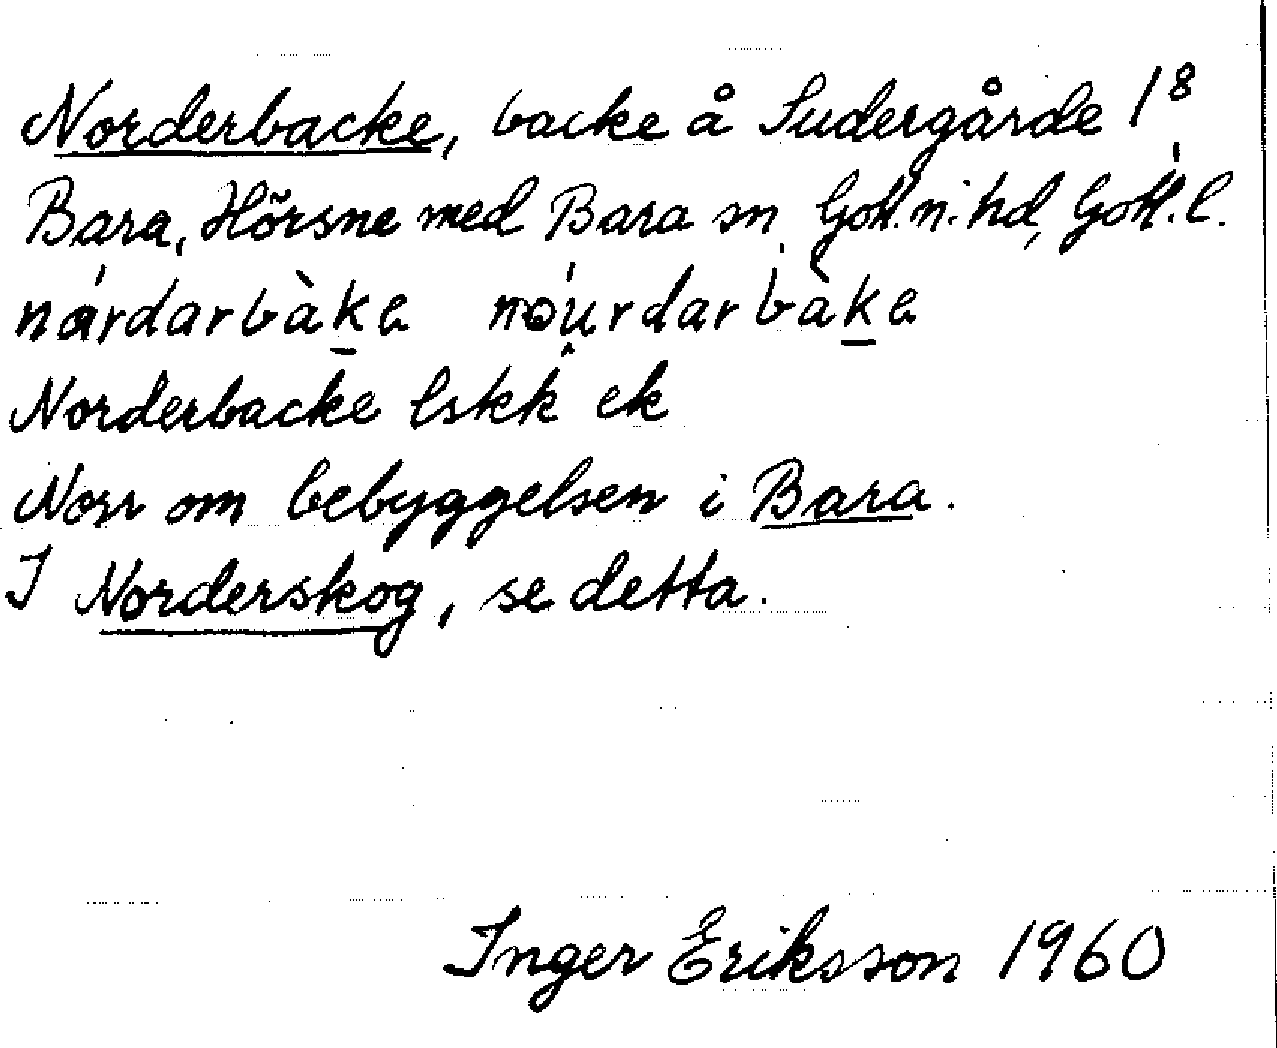 Norderbacke, backe å Sudergårde 1⁸
Bara, Hörsne med Bara sn, Gotl.n.hd, Gotl.l.
nárdarbàka nóurdarbàka
Norderbacke lskk ek
Norr om bebyggelsen i Bara.
I Norderskog, se detta.
Inger Eriksson 1960